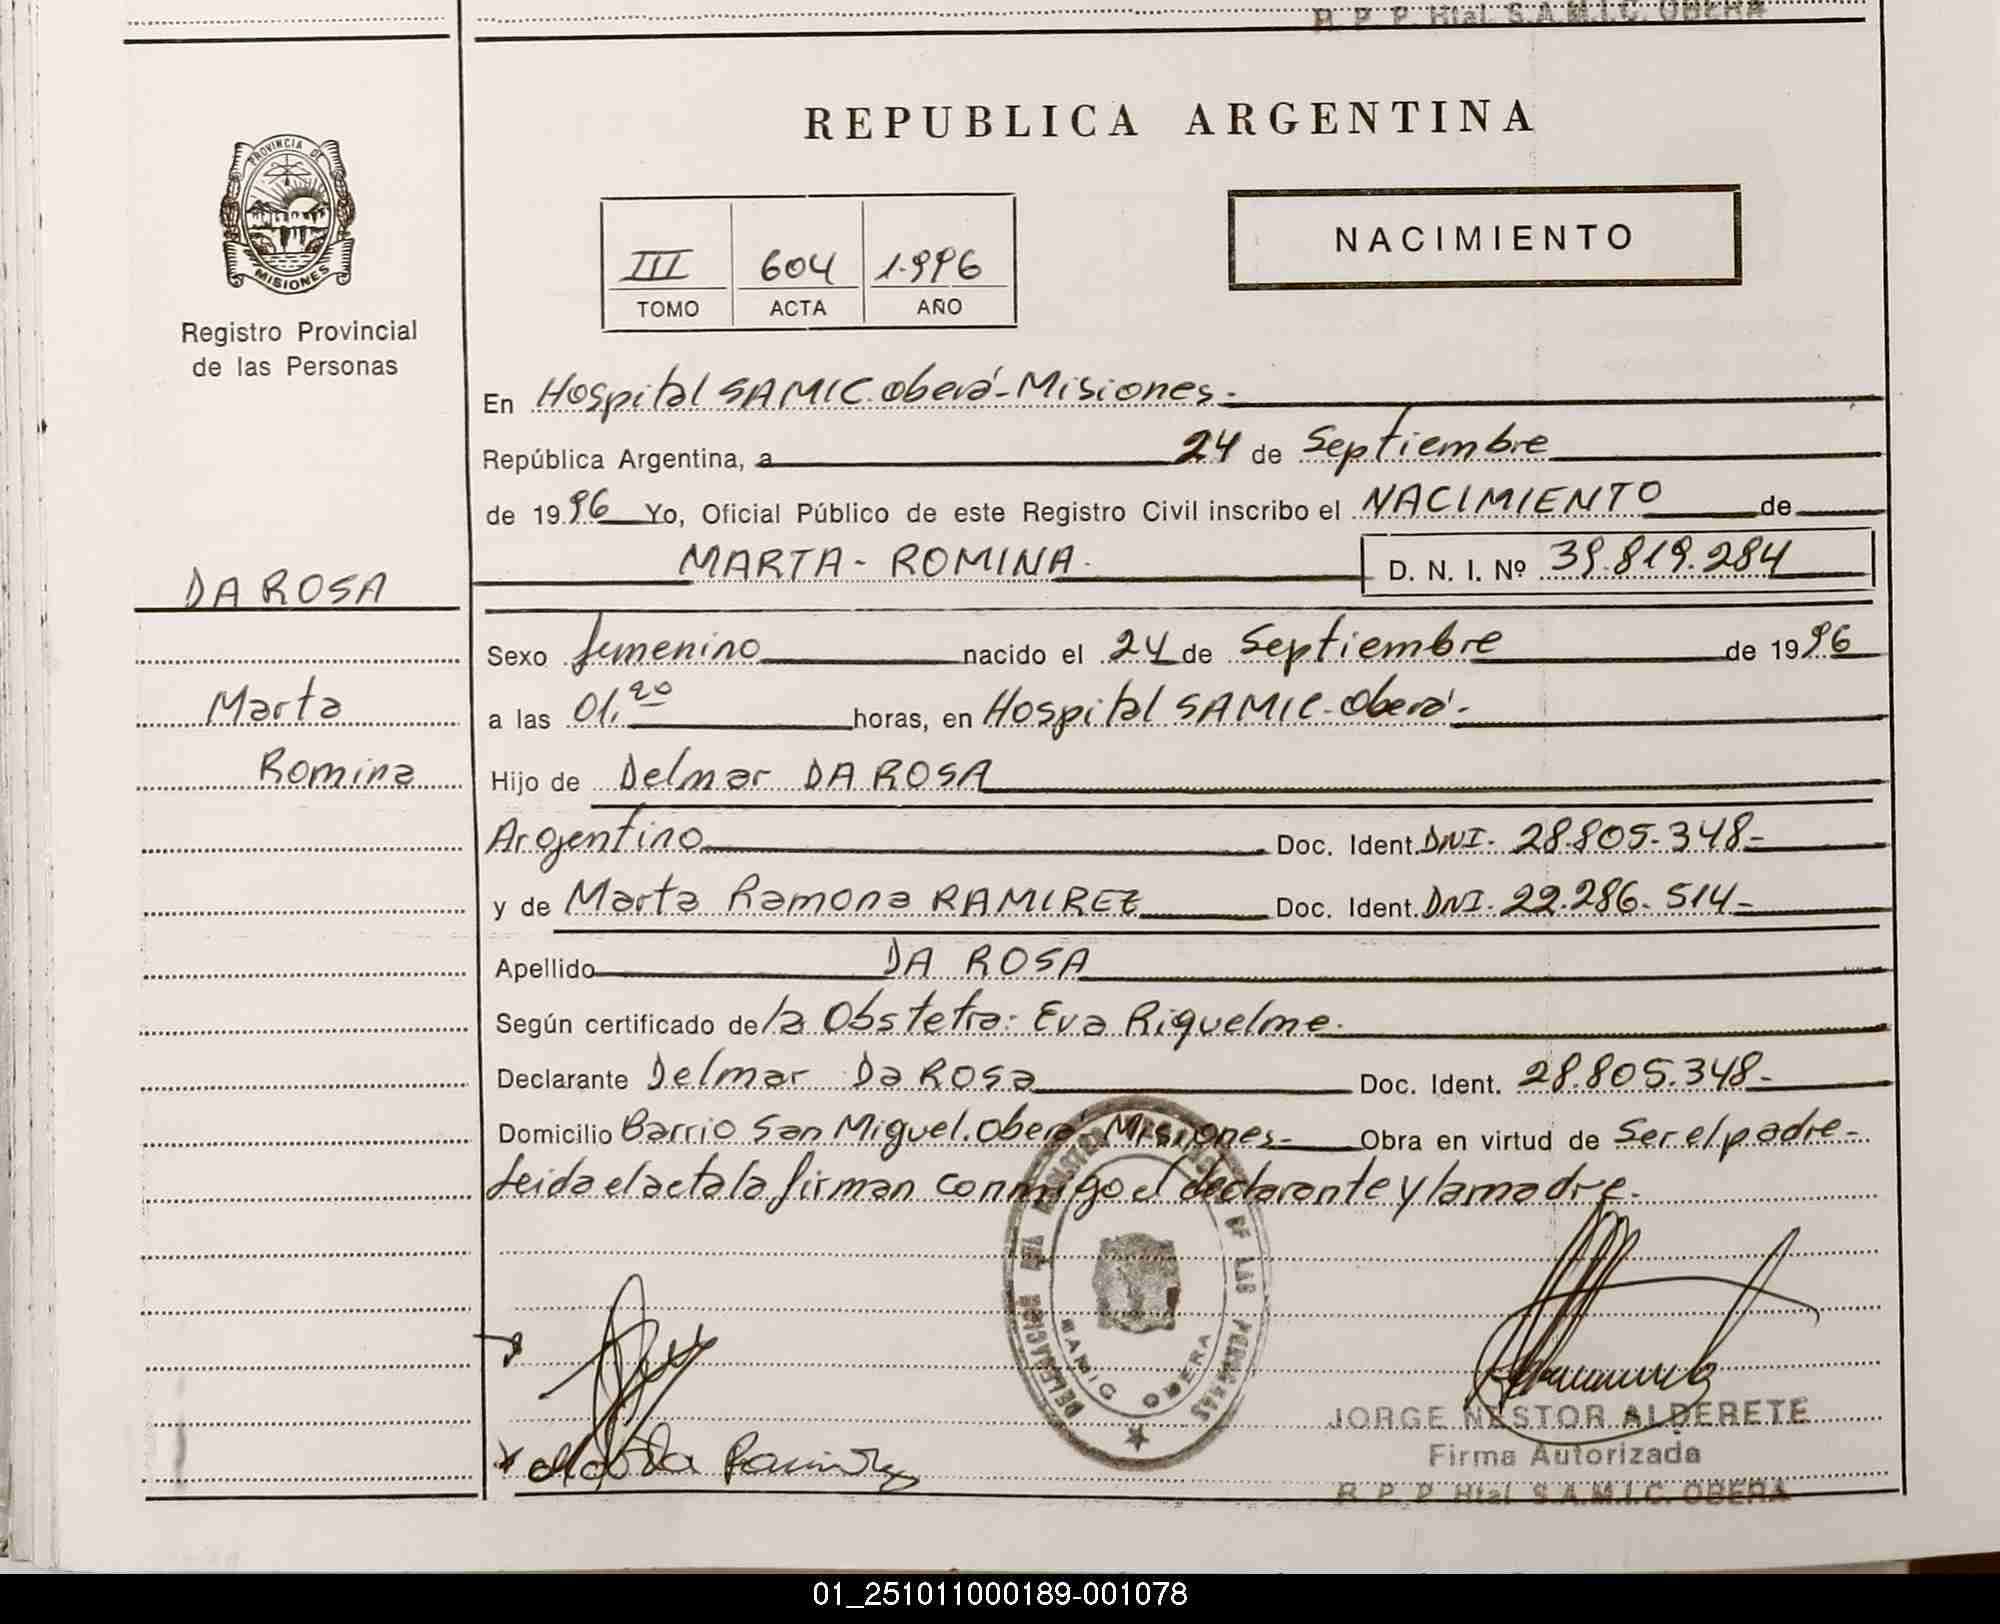 R. P. P. Htal. S.A.M.I.C. OBERA
REPUBLICA ARGENTINA
PROVINCIA DE
MISIONES
Registro Provincial
de las Personas
III 604 1.996
TOMO ACTA AÑO
NACIMIENTO
En Hospital SAMIC. Oberá - Misiones.-
República Argentina, a 24 de Septiembre
de 1996 Yo, Oficial Público de este Registro Civil inscribo el NACIMIENTO de
MARTA - ROMINA. D. N. I. Nº 39.819.284
DA ROSA
Sexo femenino nacido el 24 de Septiembre de 1996
Marta
a las 01,20 horas, en Hospital SAMIC - Oberá.-
Romina
Hijo de Delmar DA ROSA
Argentino Doc. Ident. DNI. 28.805.348-
y de Marta Ramona RAMIREZ Doc. Ident. DNI. 22.286.514-
Apellido DA ROSA
Según certificado de la Obstetra: Eva Riquelme.
Declarante Delmar Da ROSa Doc. Ident. 28.805.348-
Domicilio Barrio San Miguel. Oberá Misiones- Obra en virtud de Ser el padre-
Leida el acta la firman conmigo el declarante y la madre.
DELEGACION DE LAS PERSONAS
SAMIC OBERA
JORGE NESTOR ALDERETE
Firma Autorizada
R. P. P. Htal. S.A.M.I.C. OBERA
Ramirez
01_251011000189-001078